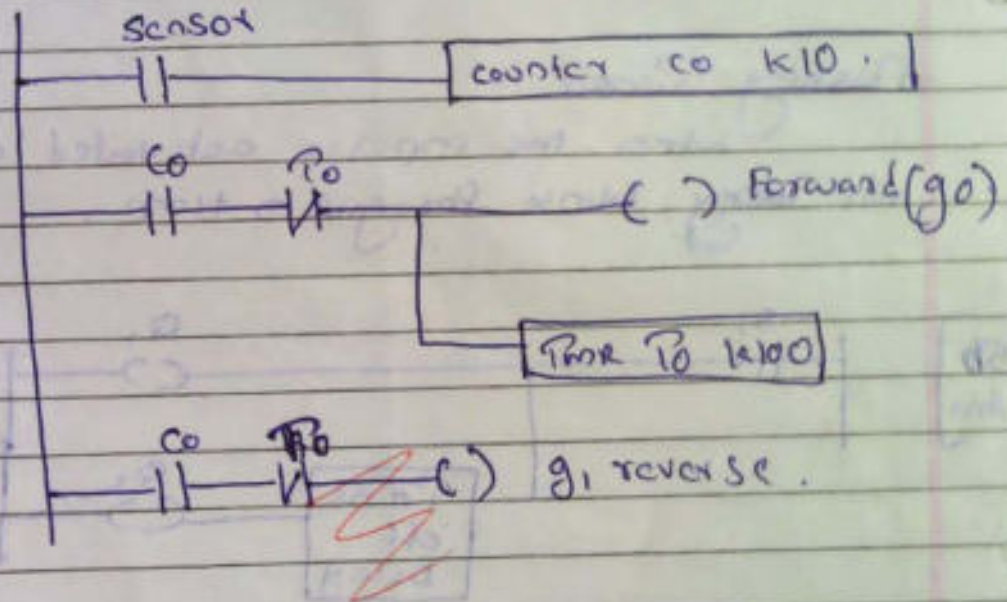 Sensor
counter co k10 .
Co To
( ) Forward (g0)
Tmr To k100
Co To
( ) g1 reverse .